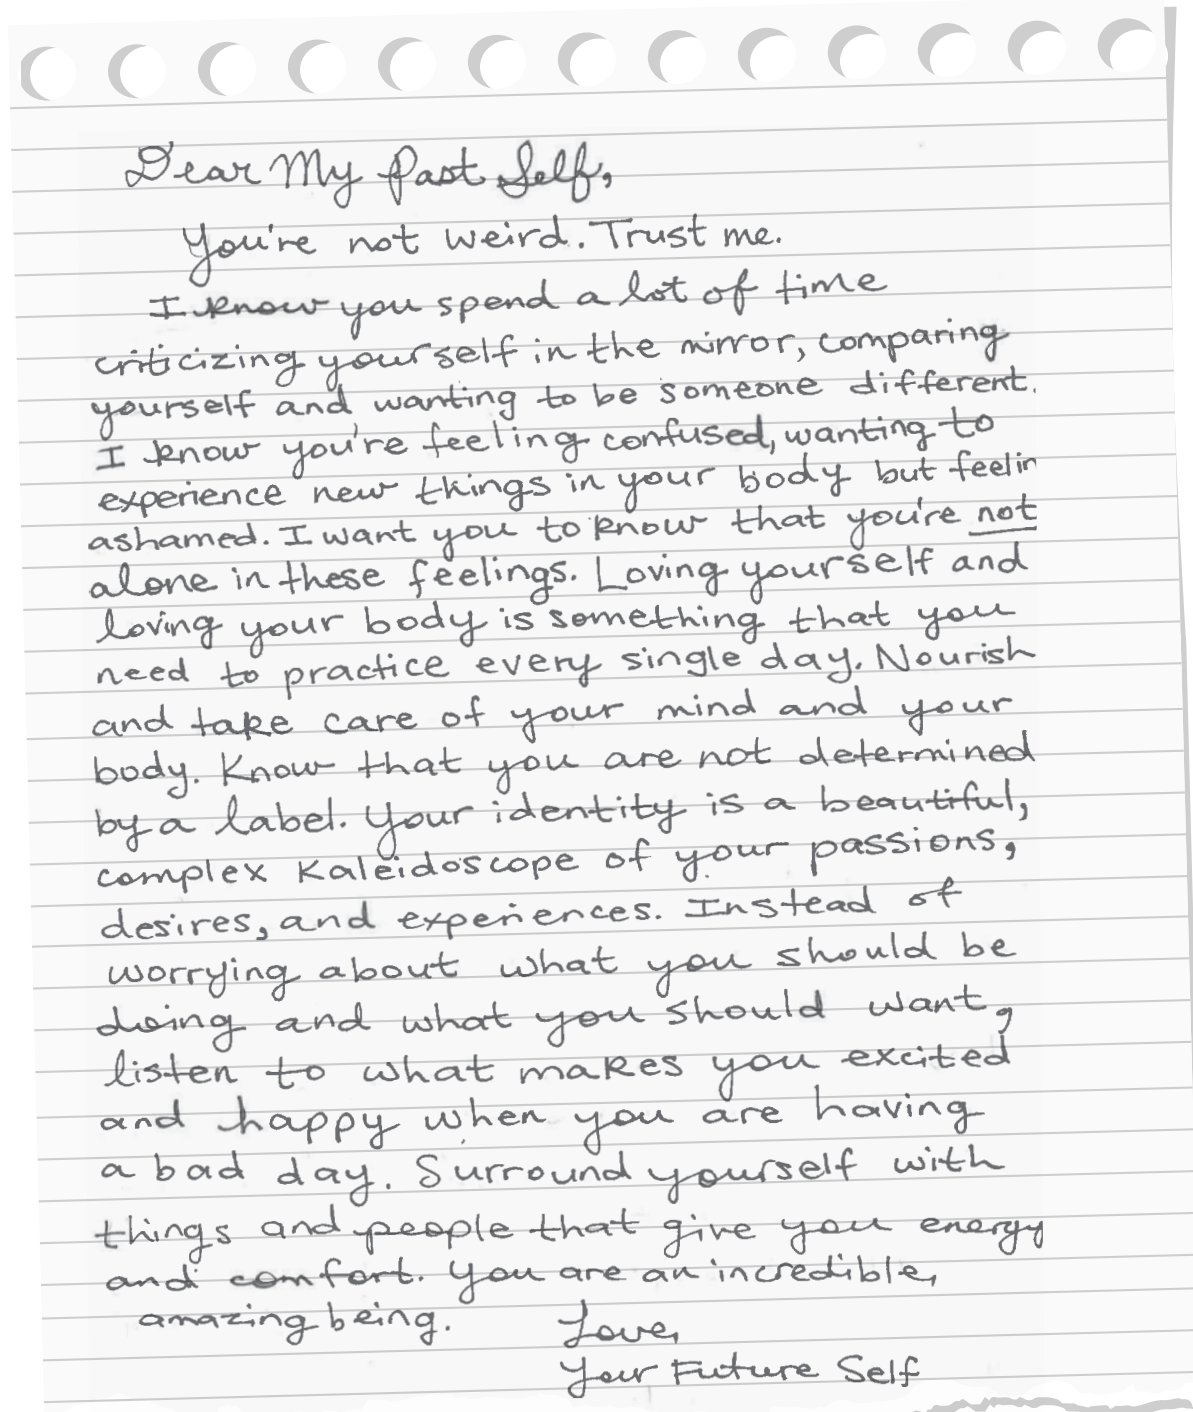 Dear My Past Self,
You're not weird. Trust me.
I know you spend a lot of time
criticizing yourself in the mirror, comparing
yourself and wanting to be someone different.
I know you're feeling confused, wanting to
experience new things in your body but feelin
ashamed. I want you to know that you're not
alone in these feelings. Loving yourself and
loving your body is something that you
need to practice every single day. Nourish
and take care of your mind and your
body. Know that you are not determined
by a label. Your identity is a beautiful,
complex kaleidoscope of your passions,
desires, and experiences. Instead of
worrying about what you should be
doing and what you should want,
listen to what makes you excited
and happy when you are having
a bad day. Surround yourself with
things and people that give you energy
and comfort. You are an incredible,
amazing being.
Love,
Your Future Self